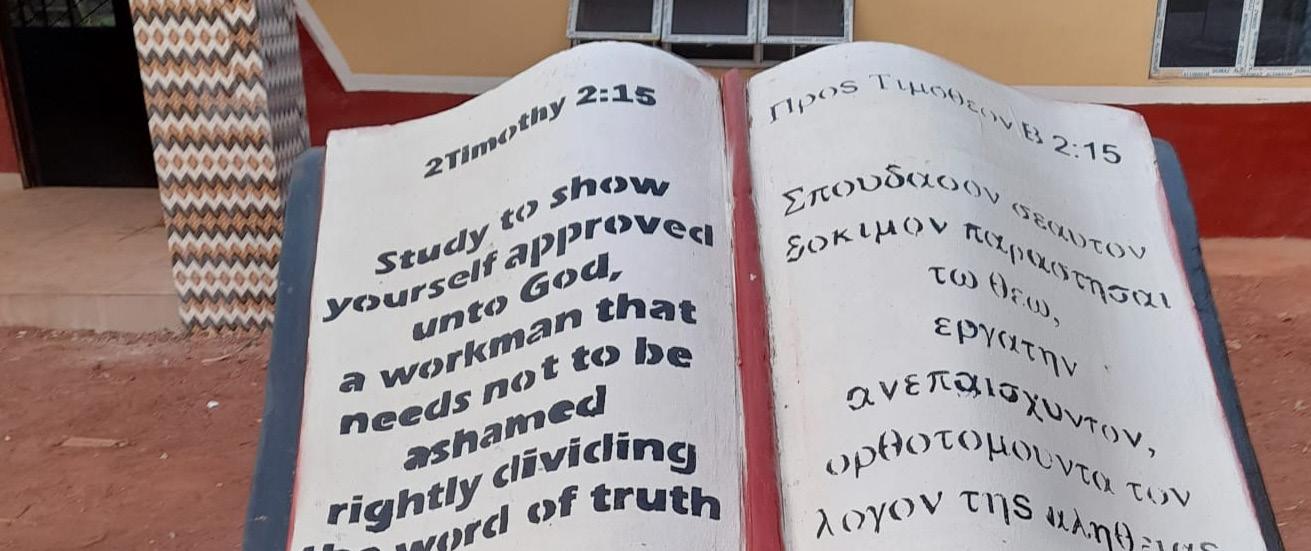 2Timothy 2:15
Study to show
yourself approved
unto God,
a workman that
needs not to be
ashamed
rightly dividing
the word of truth
Προς Τιμοθεον Β 2:15
Σπουδασον σεαυτον
δοκιμον παραστησαι
τω θεω,
εργατην
ανεπαισχυντον,
ορθοτομουντα τον
λογον της αληθειας